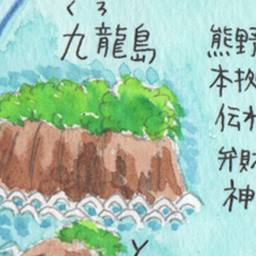 くろ
九龍島
熊野
本
伝
弁財
神